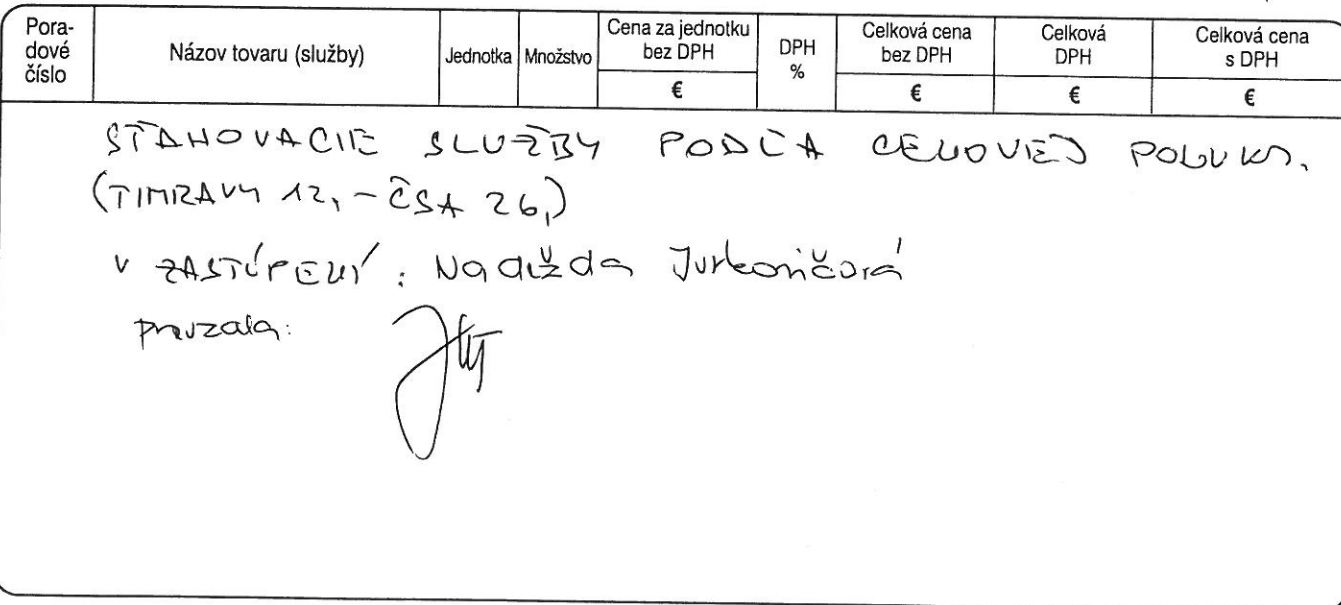 Pora-
dové
číslo
Názov tovaru (služby)
Jednotka
Množstvo
Cena za jednotku
bez DPH
€
DPH
%
Celková cena
bez DPH
€
Celková
DPH
€
Celková cena
s DPH
€
SŤAHOVACIE SLUŽBY PODĽA CENOVEJ PONUKY.
(TIMRAVY 12, - ČSA 26,)
V ZASTÚPENÍ: Nadežda Jurkovičová
prevzala: